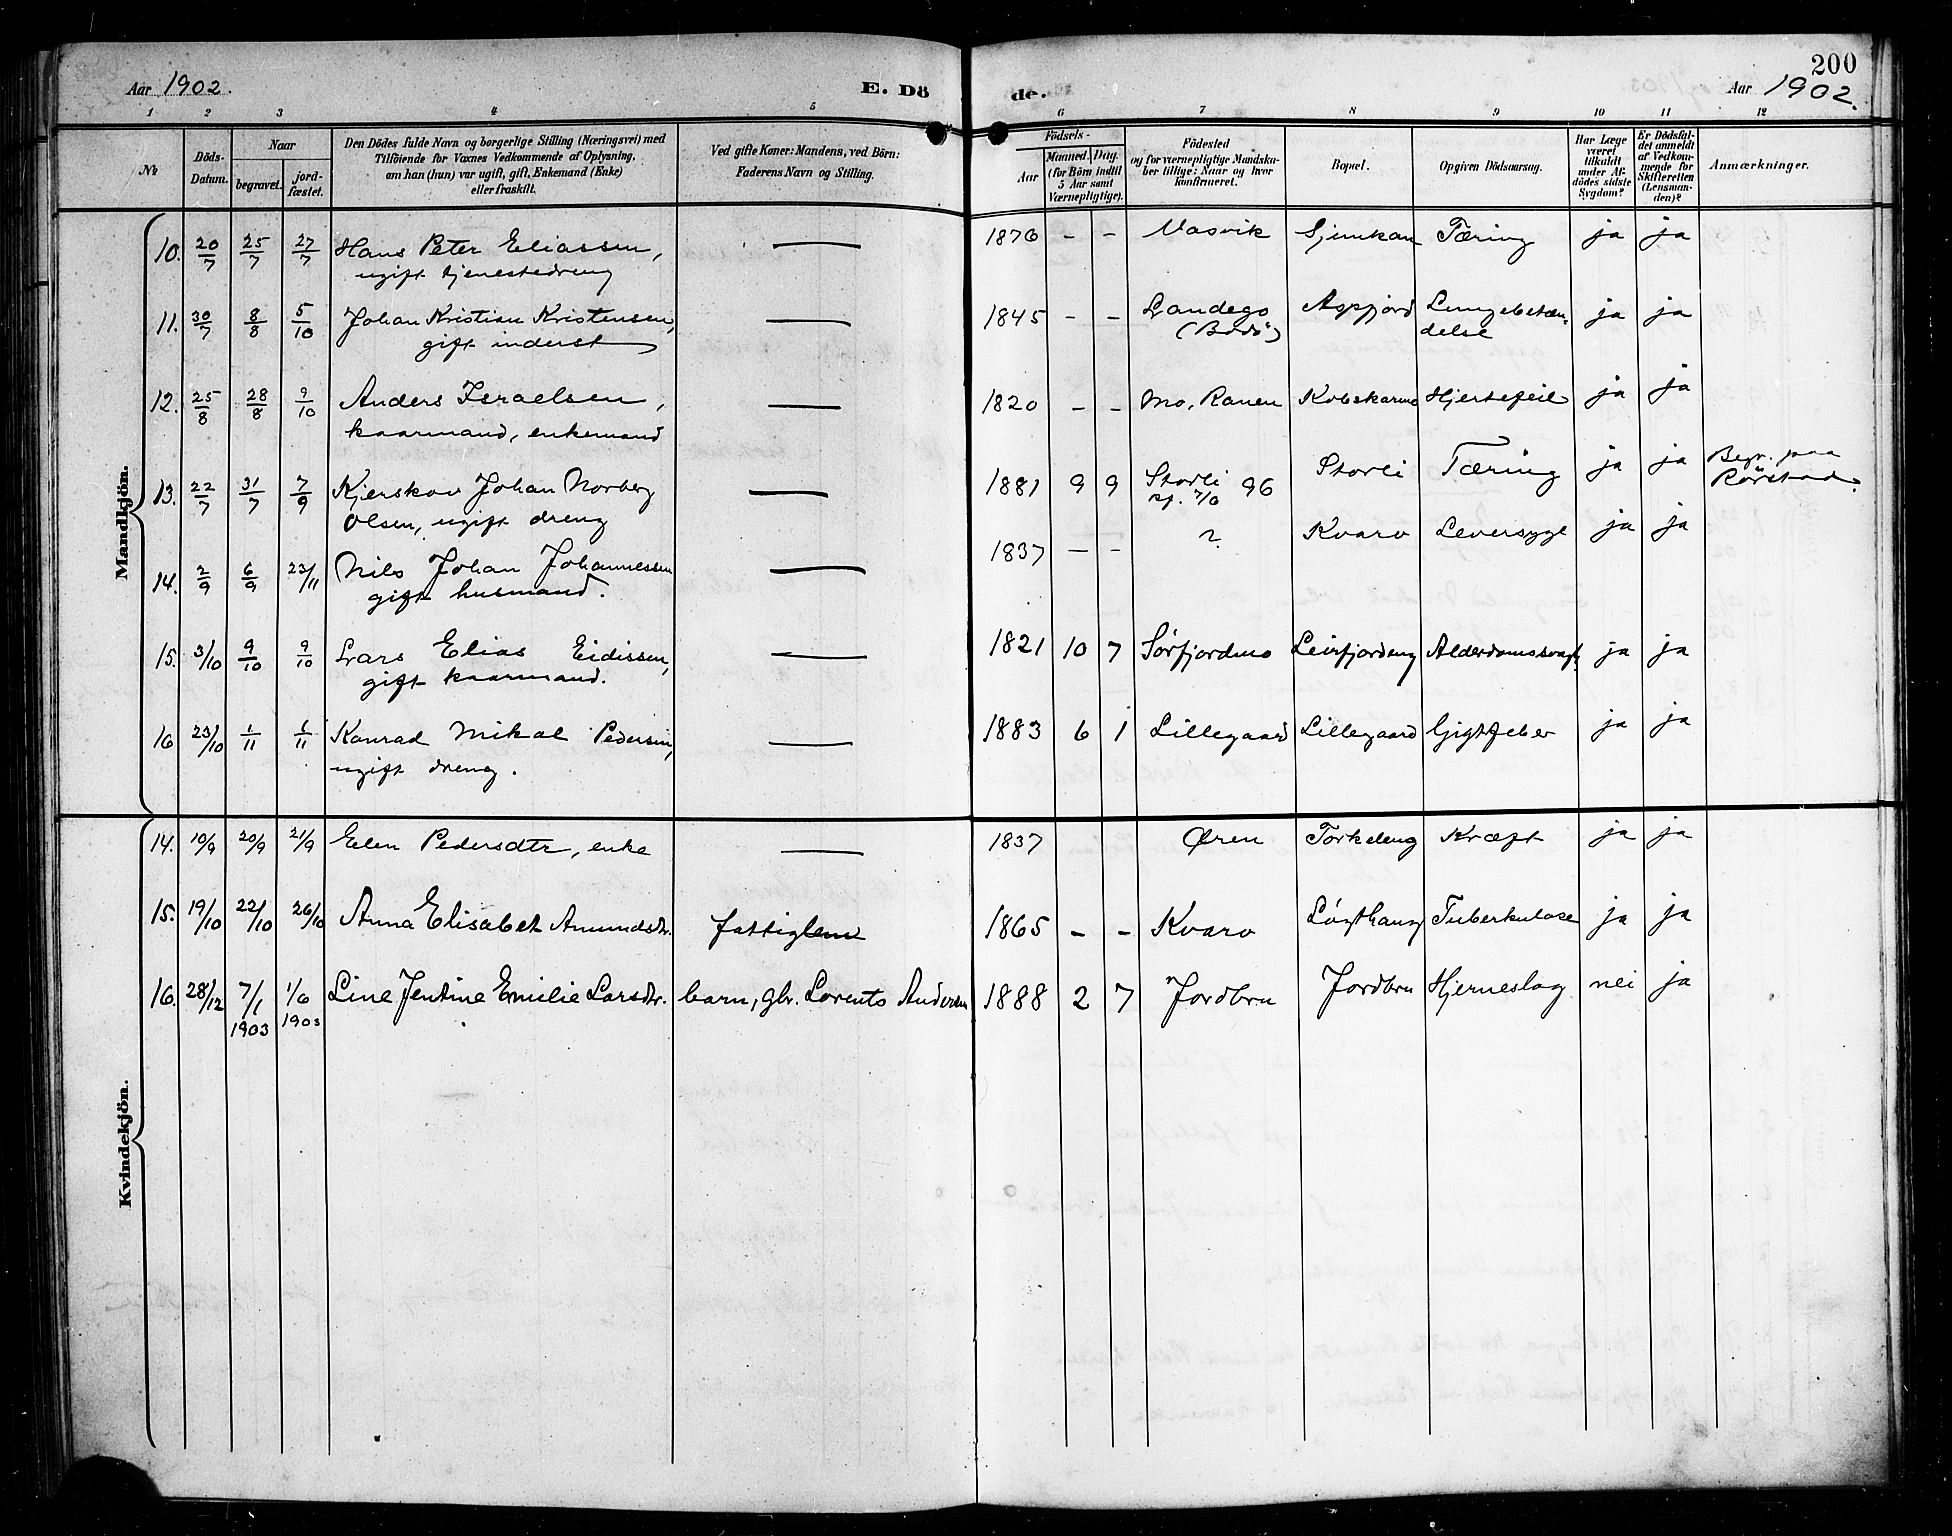 Aar 1902. E. Dö de. Aar 1902.
200
1 2 3 4 5 6 7 8 9 10 11 12
№ Döds-Datum. Naar begravet. jord-fæstet. Den Dödes fulde Navn og borgerlige Stilling (Næringsvei) med Tilföiende for Voxnes Vedkommende af Oplysning, om han (hun) var ugift, gift, Enkemand (Enke) eller fraskilt. Ved gifte Koner: Mandens, ved Börn: Faderens Navn og Stilling. Födsels- Aar Maaned. Dag. (for Börn indtil 5 Aar samt Værnepligtige). Födested og for værnepligtige Mandskaber tillige: Naar og hvor konfirmeret. Bopæl. Opgiven Dödsaarsag. Har Læge været tilkaldt under Afdödes sidste Sygdom? Er Dödsfaldet anmeldt af Vedkommende for Skifteretten (Lensmanden)? Anmærkninger.
Mandkjön.
10. 20/7 25/7 27/7 Hans Peter Eliassen, — 1876 - - Vasvik Tæring ja ja
ugift tjenestedreng
11. 30/7 8/8 5/10 Johan Kristian Kristensen, — 1845 - - Landego Aspfjord Lungebetæn-
gift inderst (Bodö) delse ja ja
12. 25/8 28/8 9/10 Anders Israelsen, — 1820 - - Mo, Ranen Kobskarmo Hjertefeil ja ja
kaarmand, enkemand
13. 22/7 31/7 7/9 Kjerskov Johan Norberg — 1881 9 9 Storli Storli Tæring ja ja Begr. paa
Olsen, ugift dreng 96 Rörstad.
14. 2/9 6/9 23/11 Nils Johan Johannessen — 1837 - - ? Kvarv Leversyge ja ja
gift husmand.
15. 3/10 9/10 9/10 Lars Elias Eidissen, — 1821 10 7 Sörfjordmo Leirfjordeng Alderdomssvagh. ja ja
gift kaarmand.
16 23/10 1/11 1/11 Konrad Mikal Pedersen, — 1883 6 1 Lillegaard Lillegaard Gigtfeber ja ja
ugift dreng.
Kvindekjön.
14. 19/9 20/9 21/9 Elen Pedersdtr, enke — 1837 Øren Torkeleng Kræft ja ja
15. 19/10 22/10 26/10 Anna Elisabet Amundsdtr. fattiglem 1865 - - Kvarv Lögthaug Tuberkulose ja ja
16. 28/12 7/1 1/6 Line Jentine Emilie Larsdtr. barn, gbr. Lorents Andersen 1888 2 7 Jordbru Jordbru Hjerneslag nei ja
1903 1903